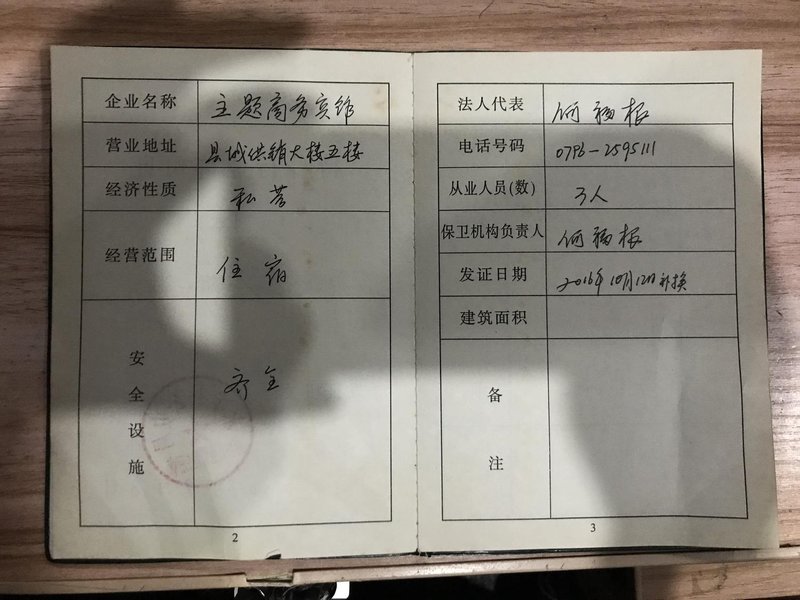 企业名称 主题商务宾馆
营业地址 县城供销大楼五楼
经济性质 私营
经营范围 住宿
安全设施 齐全
2
法人代表 何福根
电话号码 0796-2595111
从业人员(数) 3人
保卫机构负责人 何福根
发证日期 2016年10月12日补换
建筑面积
备注
3